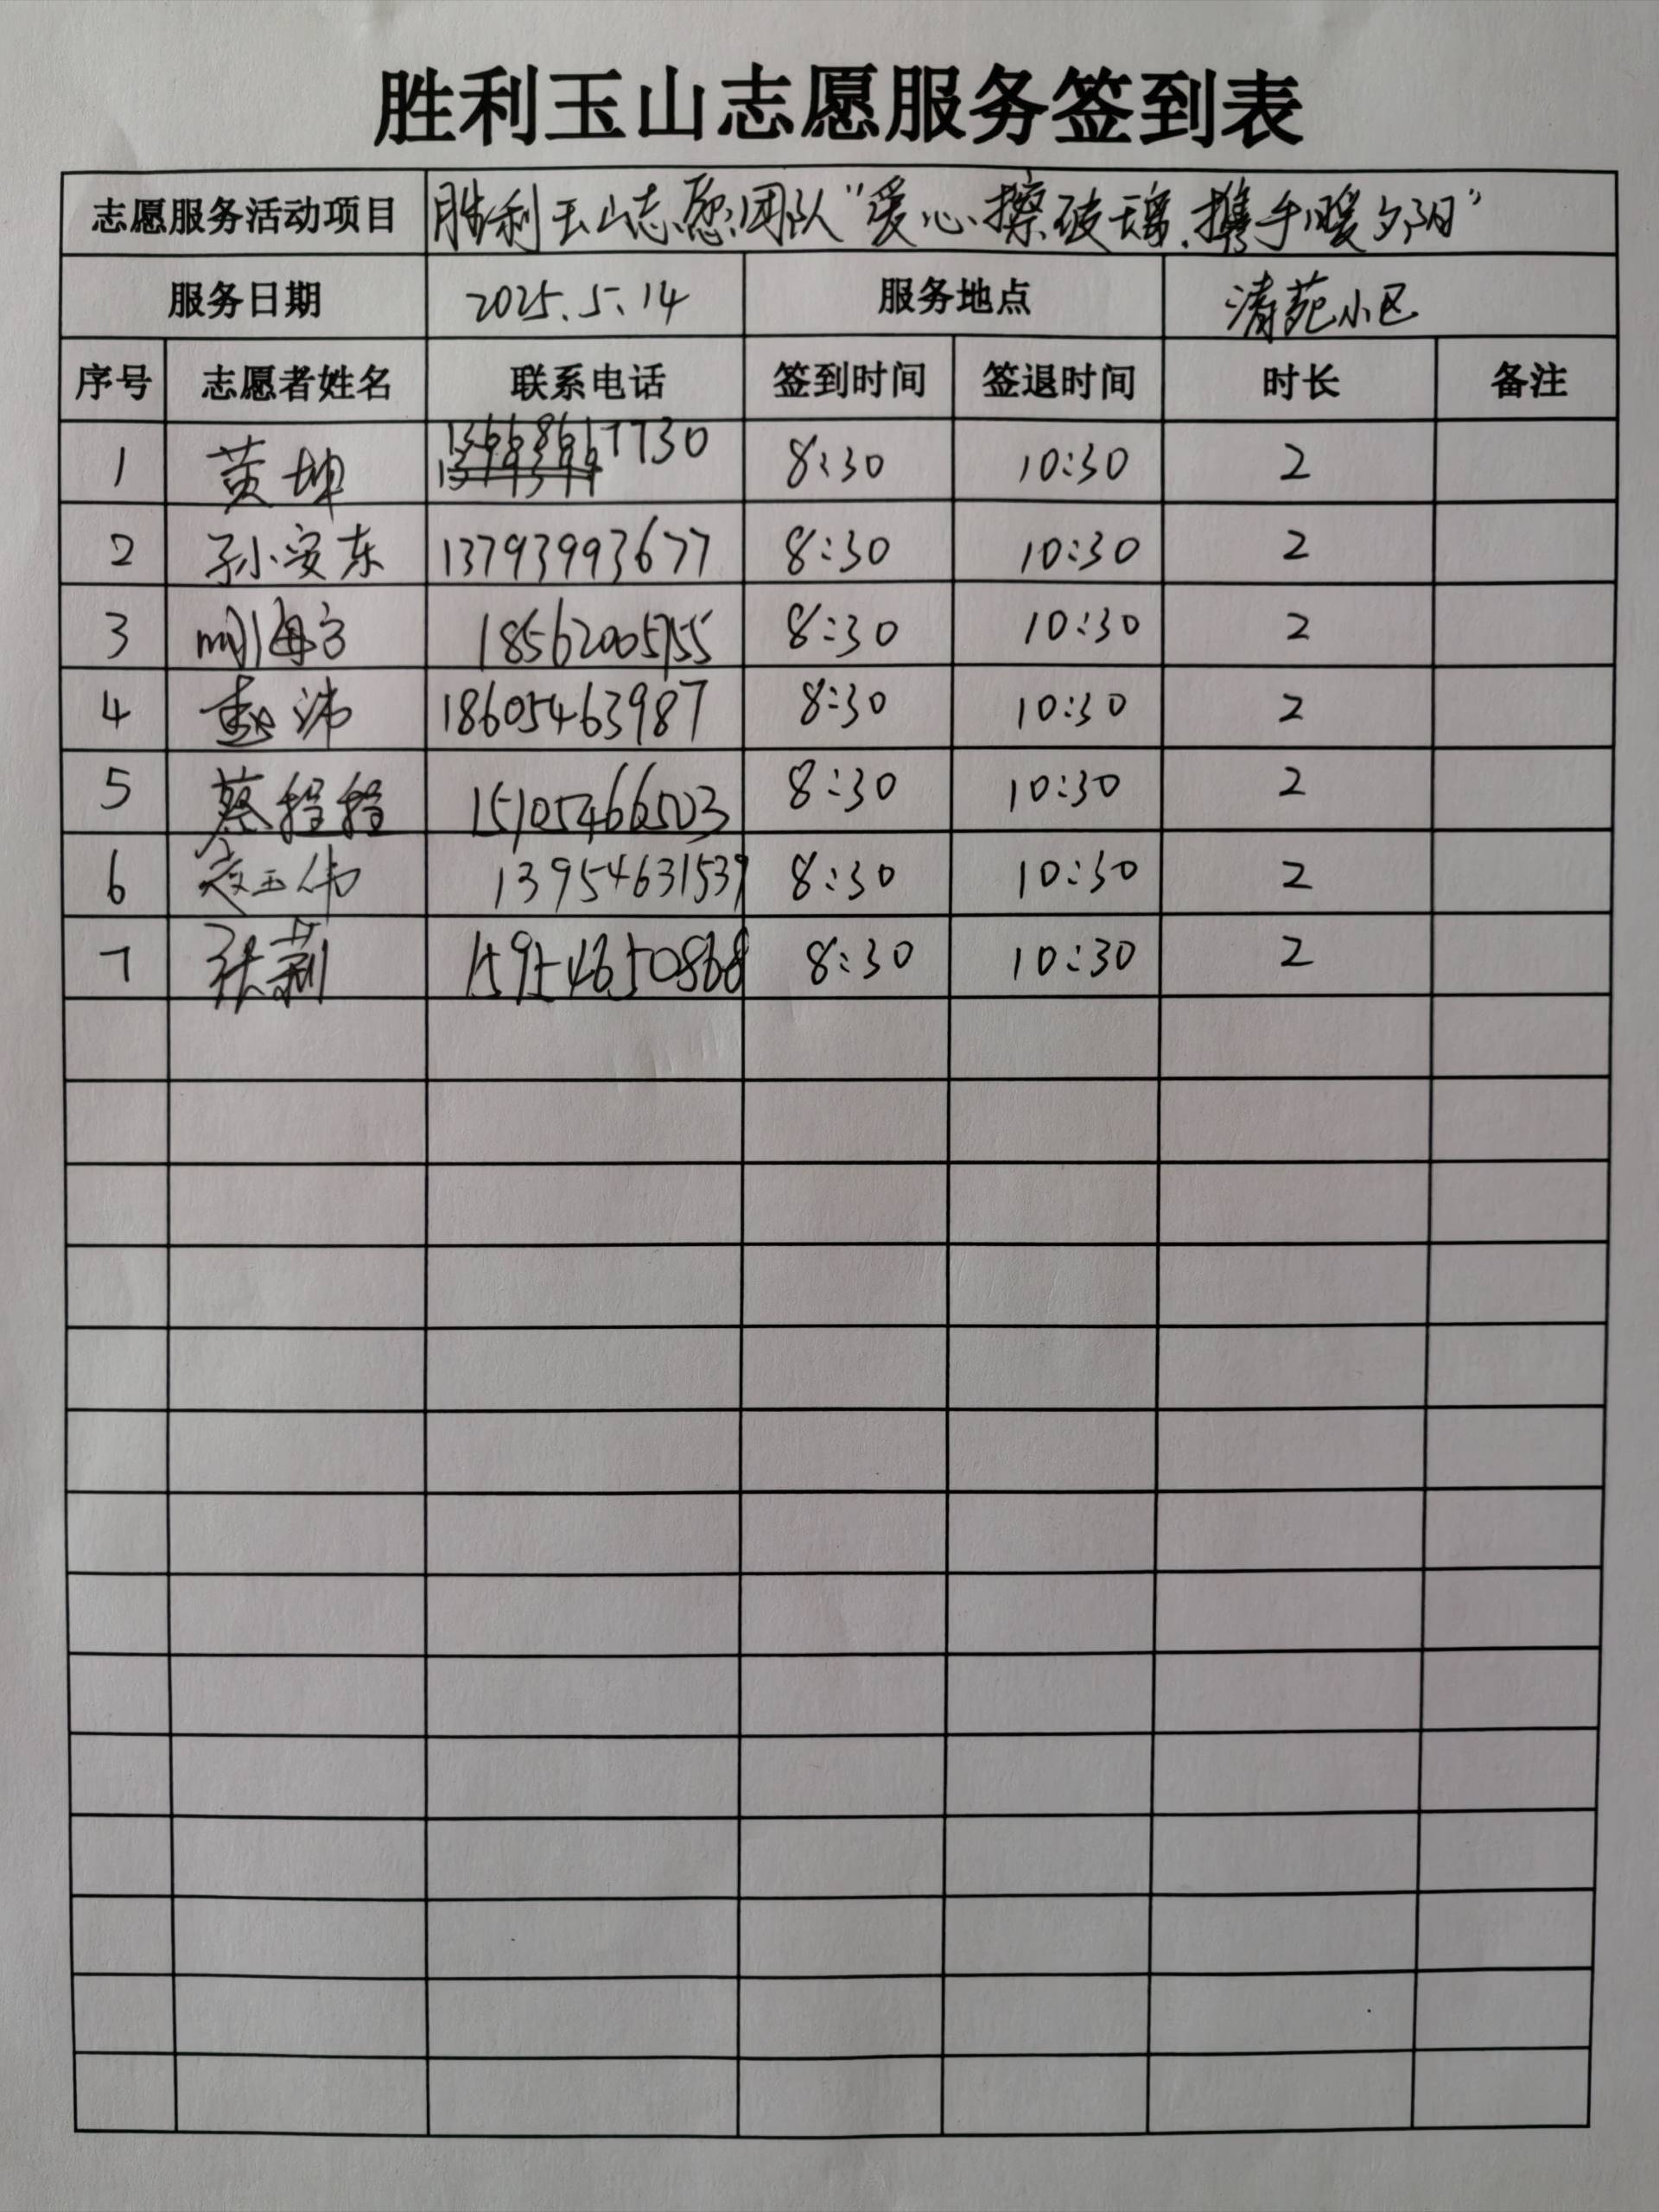 胜利玉山志愿服务签到表
志愿服务活动项目 胜利玉山志愿团队“爱心擦玻璃.携手暖夕阳”
服务日期 2025.5.14 服务地点 清苑小区
序号 志愿者姓名 联系电话 签到时间 签退时间 时长 备注
1 黄坤 7730 8:30 10:30 2
2 孙安东 13793993677 8:30 10:30 2
3 18562005155 8:30 10:30 2
4 18605463987 8:30 10:30 2
5 蔡程程 15105466503 8:30 10:30 2
6 玉伟 13954631539 8:30 10:30 2
7 张莉 15954650868 8:30 10:30 2